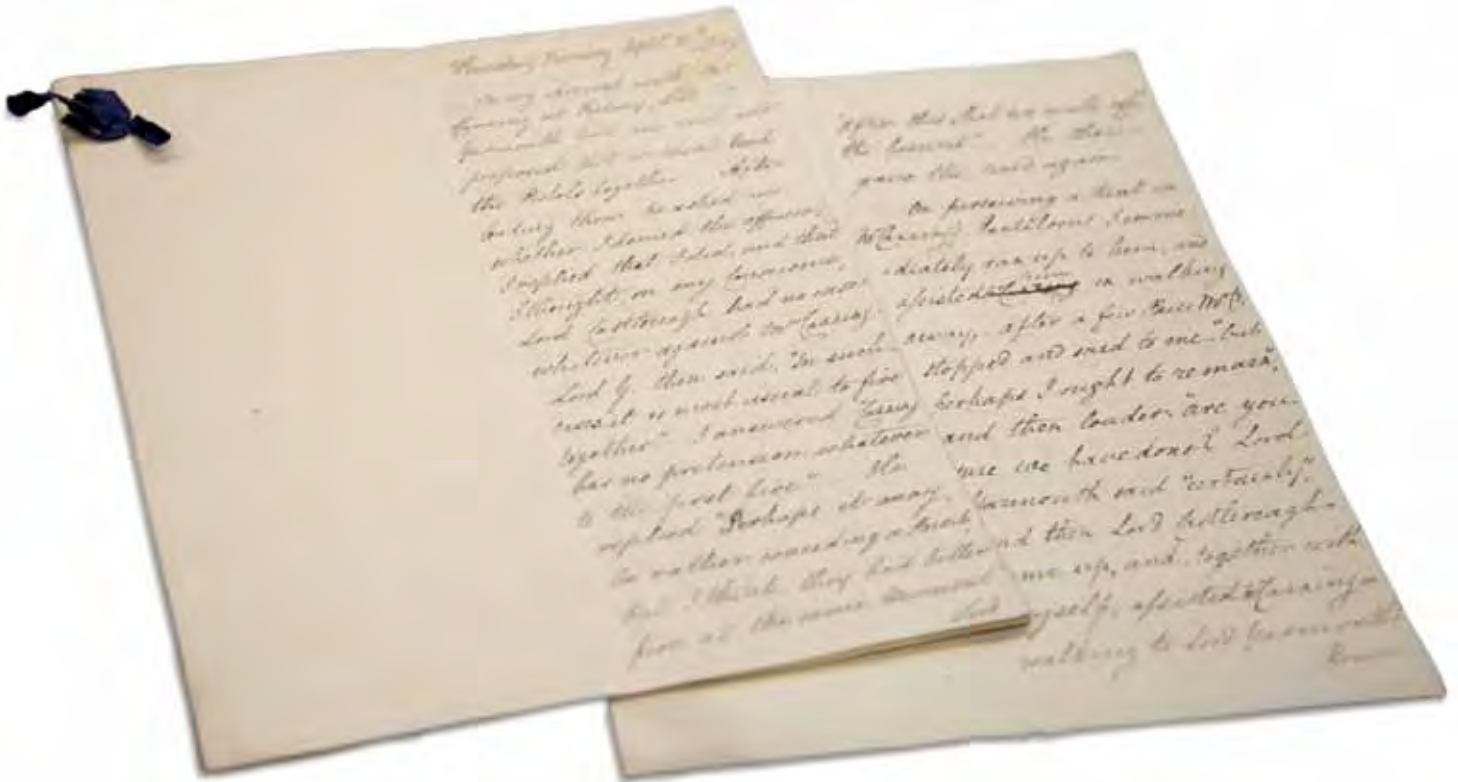 Thursday Evening April
On my arrival with Mr
Canning at Putney, Lord
Yarmouth met me and
proposed that we should load
the Pistols together After
loading them he asked me
whether I loaded the offense,
I replied that I did, and that
I thought, on my conscience,
Lord Castlereagh had no case
whatever against Mr Canning.
Lord Y. then said, "In such
cases it is most usual to fire
together." I answered Canning
has no pretension whatever
to the first fire". He
replied "Perhaps it may
be rather conceding a
but I think they had better
fire at the same moment
Lord
After this shot we must
the Ground" He then
gave the word again
On perceiving a Rent in
Mr Canning's Pantaloons, I imme
diately ran up to him, and
assisted him in walking
away, after a few Paces Mr C.
stopped and said to me "but
perhaps I ought to remain",
and then louder "are you
sure we have done?" Lord
Yarmouth said "certainly",
and then Lord Castlereagh
came up, and, together with
myself, assisted Mr Canning in
walking to Lord Yarmouth's
House